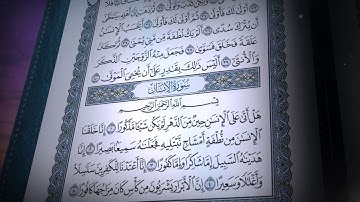 أَوْلَىٰ لَكَ فَأَوْلَىٰ ٣٤ ثُمَّ أَوْلَىٰ لَكَ فَأَوْلَىٰ ٣٥ أَيَحْسَبُ ٱلْإِنسَٰنُ
أَن يُتْرَكَ سُدًى ٣٦ أَلَمْ يَكُ نُطْفَةً مِّن مَّنِىٍّ يُمْنَىٰ ٣٧ ثُمَّ كَانَ
عَلَقَةً فَخَلَقَ فَسَوَّىٰ ٣٨ فَجَعَلَ مِنْهُ ٱلزَّوْجَيْنِ ٱلذَّكَرَ
وَٱلْأُنثَىٰٓ ٣٩ أَلَيْسَ ذَٰلِكَ بِقَٰدِرٍ عَلَىٰٓ أَن يُحْـِۧىَ ٱلْمَوْتَىٰ ٤٠
سُورَةُ ٱلْإِنسَانِ
بِسْمِ ٱللَّهِ ٱلرَّحْمَٰنِ ٱلرَّحِيمِ
هَلْ أَتَىٰ عَلَى ٱلْإِنسَٰنِ حِينٌ مِّنَ ٱلدَّهْرِ لَمْ يَكُن شَيْـًٔا مَّذْكُورًا ١ إِنَّا خَلَقْنَا
ٱلْإِنسَٰنَ مِن نُّطْفَةٍ أَمْشَاجٍ نَّبْتَلِيهِ فَجَعَلْنَٰهُ سَمِيعًۢا بَصِيرًا ٢ إِنَّا
هَدَيْنَٰهُ ٱلسَّبِيلَ إِمَّا شَاكِرًا وَإِمَّا كَفُورًا ٣ إِنَّآ أَعْتَدْنَا لِلْكَٰفِرِينَ سَلَٰسِلَا۟
وَأَغْلَٰلًا وَسَعِيرًا ٤ إِنَّ ٱلْأَبْرَارَ يَشْرَبُونَ مِن كَأْسٍ كَانَ مِزَاجُهَا كَافُورًا ٥